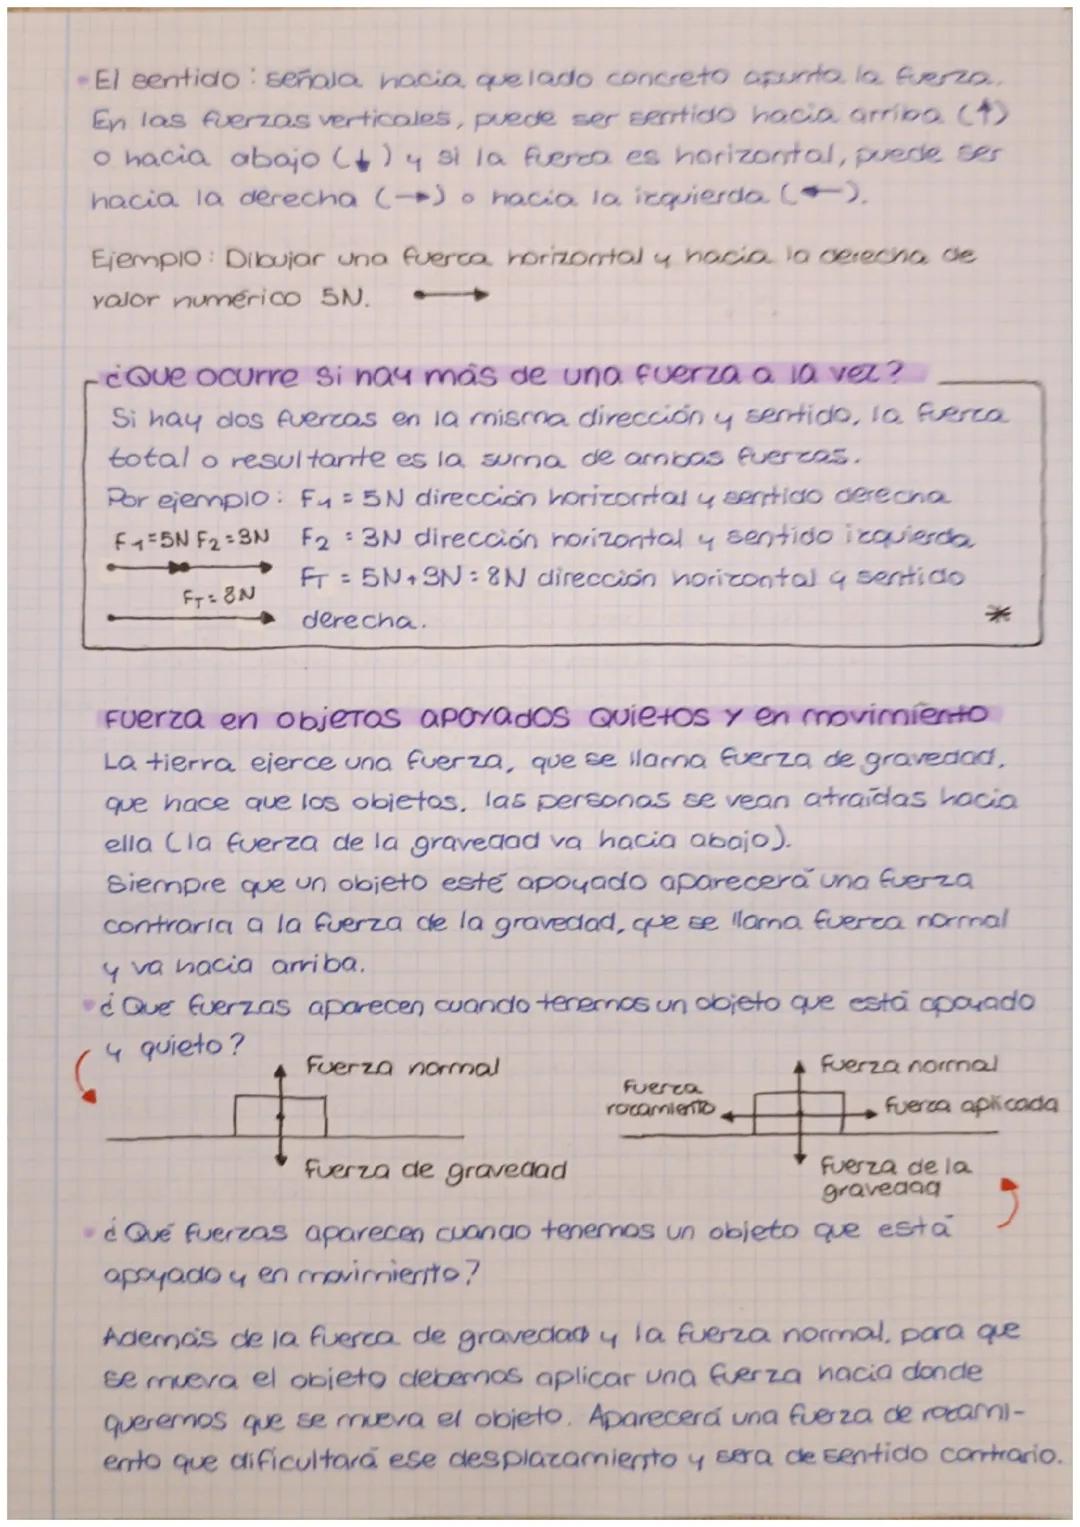 El sentido: señala hacia que lado concreto apunta la fuerza.
En las fuerzas verticales, puede ser sentido hacia arriba (↑)
o hacia abajo (↓) y si la fuerza es horizontal, puede ser
hacia la derecha (→) o hacia la izquierda (←).
Ejemplo: Dibujar una fuerza horizontal y hacia la derecha de
valor numérico 5N.
¿Que ocurre si hay más de una fuerza a la vez?
Si hay dos fuerzas en la misma dirección y sentido, la fuerza
total o resultante es la suma de ambas fuerzas.
Por ejemplo: F1 = 5N dirección horizontal y sentido derecha
F1=5N F2=3N F2 = 3N dirección horizontal y sentido izquierda
FT = 5N+3N=8N dirección horizontal y sentido
FT=8N
derecha. *
Fuerza en objetos apoyados quietos y en movimiento
La tierra ejerce una fuerza, que se llama fuerza de gravedad,
que hace que los objetos, las personas se vean atraídas hacia
ella (la fuerza de la gravedad va hacia abajo).
Siempre que un objeto esté apoyado aparecerá una fuerza
contraria a la fuerza de la gravedad, que se llama fuerza normal
y va hacia arriba.
¿Que fuerzas aparecen cuando tenemos un objeto que está apoyado
y quieto?
Fuerza normal
Fuerza de gravedad
Fuerza normal
Fuerza
rozamiento
Fuerza aplicada
Fuerza de la
gravedad
¿Qué fuerzas aparecen cuando tenemos un objeto que está
apoyado y en movimiento?
Además de la fuerza de gravedad y la fuerza normal, para que
se mueva el objeto debemos aplicar una fuerza hacia donde
queremos que se mueva el objeto. Aparecerá una fuerza de rozami-
ento que dificultará ese desplazamiento y sera de sentido contrario.